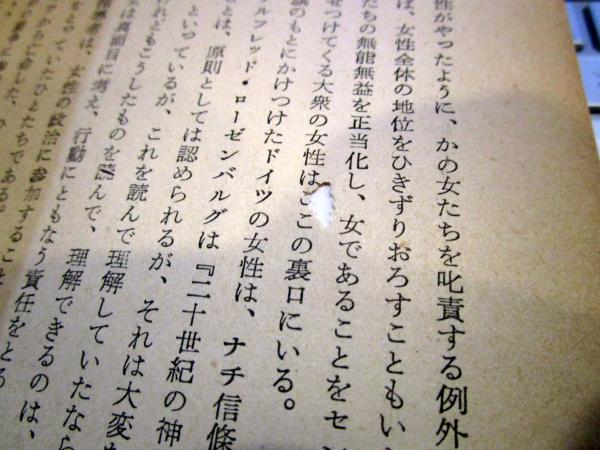 性がやったように、かの女たちを叱責する例外
ば、女性全体の地位をひきずりおろすこともい
たちの無能無益を正当化し、女であることをセン
せつけてくる大衆の女性はここの裏口にいる。
旗のもとにかけつけたドイツの女性は、ナチ信條
ルフレッド・ローゼンバルグは『二十世紀の神
ことは、原則としては認められるが、それは大変な
といっているが、これを読んで理解していたなら
けれどもこうしたものを読んで、理解できるのは、
は真面目に考え、行動にともなう責任をとる
指導者は、女性の政治に参加すること
いたひとたちである。